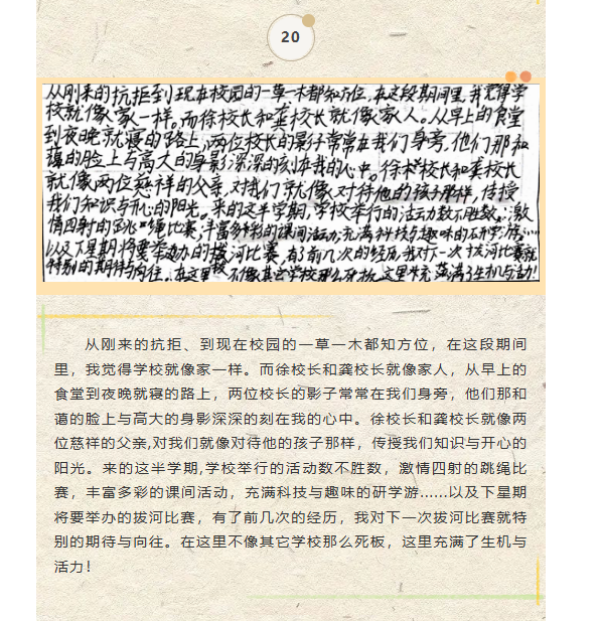 20
从刚来的抗拒到现在校园的一草一木都知方位,在这段期间里,我觉得学
校就像家一样。而徐校长和龚校长就像家人。从早上的食堂
到夜晚就寝的路上,两位校长的影子常常在我们身旁,他们那和
蔼的脸上与高大的身影深深的刻在我的心中。徐校长和龚校长
就像两位慈祥的父亲,对我们就像对待他的孩子那样,传授
我们知识与开心的阳光。来的这半学期,学校举行的活动数不胜数。激
情四射的跳绳比赛,丰富多彩的课间活动,充满科技与趣味的研学游……
以及下星期将要举办的拔河比赛,有了前几次的经历,我对下一次拔河比赛就
特别的期待与向往。在这里不像其它学校那么死板,这里充满了生机与活力!
从刚来的抗拒、到现在校园的一草一木都知方位，在这段期间
里，我觉得学校就像家一样。而徐校长和龚校长就像家人，从早上的
食堂到夜晚就寝的路上，两位校长的影子常常在我们身旁，他们那和
蔼的脸上与高大的身影深深的刻在我的心中。徐校长和龚校长就像两
位慈祥的父亲,对我们就像对待他的孩子那样，传授我们知识与开心的
阳光。来的这半学期,学校举行的活动数不胜数，激情四射的跳绳比
赛，丰富多彩的课间活动，充满科技与趣味的研学游......以及下星期
将要举办的拔河比赛，有了前几次的经历，我对下一次拔河比赛就特
别的期待与向往。在这里不像其它学校那么死板，这里充满了生机与
活力！